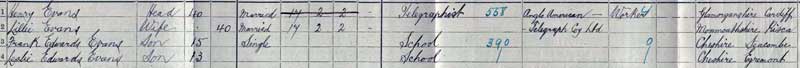 1 Henry Evans Head 40 Married 14 2 2 - Telegraphist 558 Anglo American - Worker Glamorganshire Cardiff
2 Lillie Evans Wife - 40 Married 14 2 2 - Telegraph Coy Ltd Monmouthshire Risca
3 Frank Edwards Evans Son 15 Single School 390 9 Cheshire Seacombe
4 Leslie Edwards Evans Son 13 School 9 Cheshire Egremont